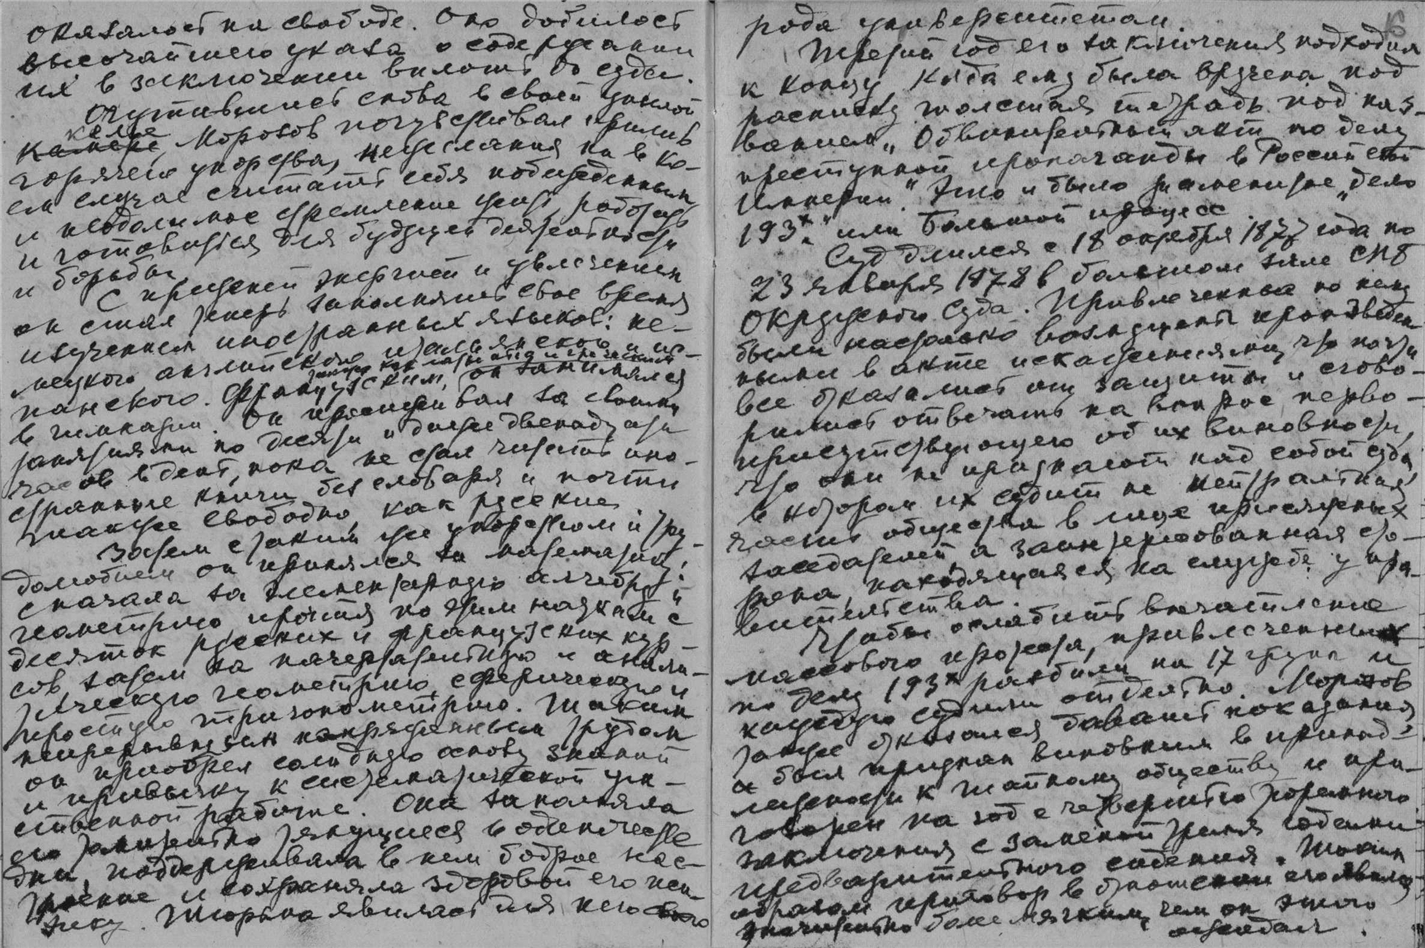 оказалось на свободе. Оно добилось
высочайшего указа о содержании
их в заключении вплоть до суда.
Очутившись снова в своей унылой
келье
камере, Морозов почувствовал прилив
горячего упорства, нежелания ни в ко-
ем случае считать себя побежденным
и неодолимое стремление жить, работать
и готовиться для будущей деятельности
и борьбы.
С прежней энергией и увлечением
он стал теперь заполнять свое время
изучением иностранных языков: не-
мецкого, английского, итальянского и ис-
также как латынью и греческим
панского. Французским, он занимался
в гимназии. Он просиживал за своими
занятиями по десяти и даже двенадцати
часов в день, пока не стал читать ино-
странные книги без словаря и почти
также свободно, как русские.
Затем с таким же упорством и тру-
долюбием он принялся за математику:
сначала за элементарную алгебру и
геометрию, прочтя по этим наукам с
десяток русских и французских кур-
сов, затем за начертательную и анали-
тическую геометрию, сферическую и
простую тригонометрию. Таким
непрерывным напряженным трудом
он приобрел солидную основу знаний
и привычку к систематической ум-
ственной работе. Она заполняла
его томительно тянущиеся в одиночестве
дни, поддерживала в нем бодрое нас-
троение и сохраняла здоровой его пси-
хику. Тюрьма явилась для него своего
рода университетом.
Третий год его заключения подходил
к концу, когда ему была вручена под
расписку толстая тетрадь под наз-
ванием „Обвинительный акт по делу
преступной пропаганды в Российской
Империи." Это и было знаменитое „дело
193х" или Большой процесс.
Суд длился с 18 октября 1877 года по
23 января 1878 в большом зале СПБ
Окружного Суда. Привлеченные по нему
были настолько возмущены произведен-
ными в акте искажениями, что почти
все отказались от защиты и сгово-
рились отвечать на вопрос перво-
присутствующего об их виновности,
что они не признают над собой суда,
в котором их судит не нейтральная
часть общества в лице присяжных
заседателей, а заинтересованная сто-
рона, находящаяся на службе у пра-
вительства.
Чтобы ослабить впечатление
массового процесса, привлеченных
по делу 193х разбили на 17 групп и
каждую судили отдельно. Морозов
также отказался давать показания
и был признан виновным в принад-
лежности к тайному обществу и при-
говорен на год с четвертью тюремного
заключения с заменой тремя годами
предварительного сидения. Таким
образом приговор в отношении его явился
значительно более мягким, чем он этого
ожидал.